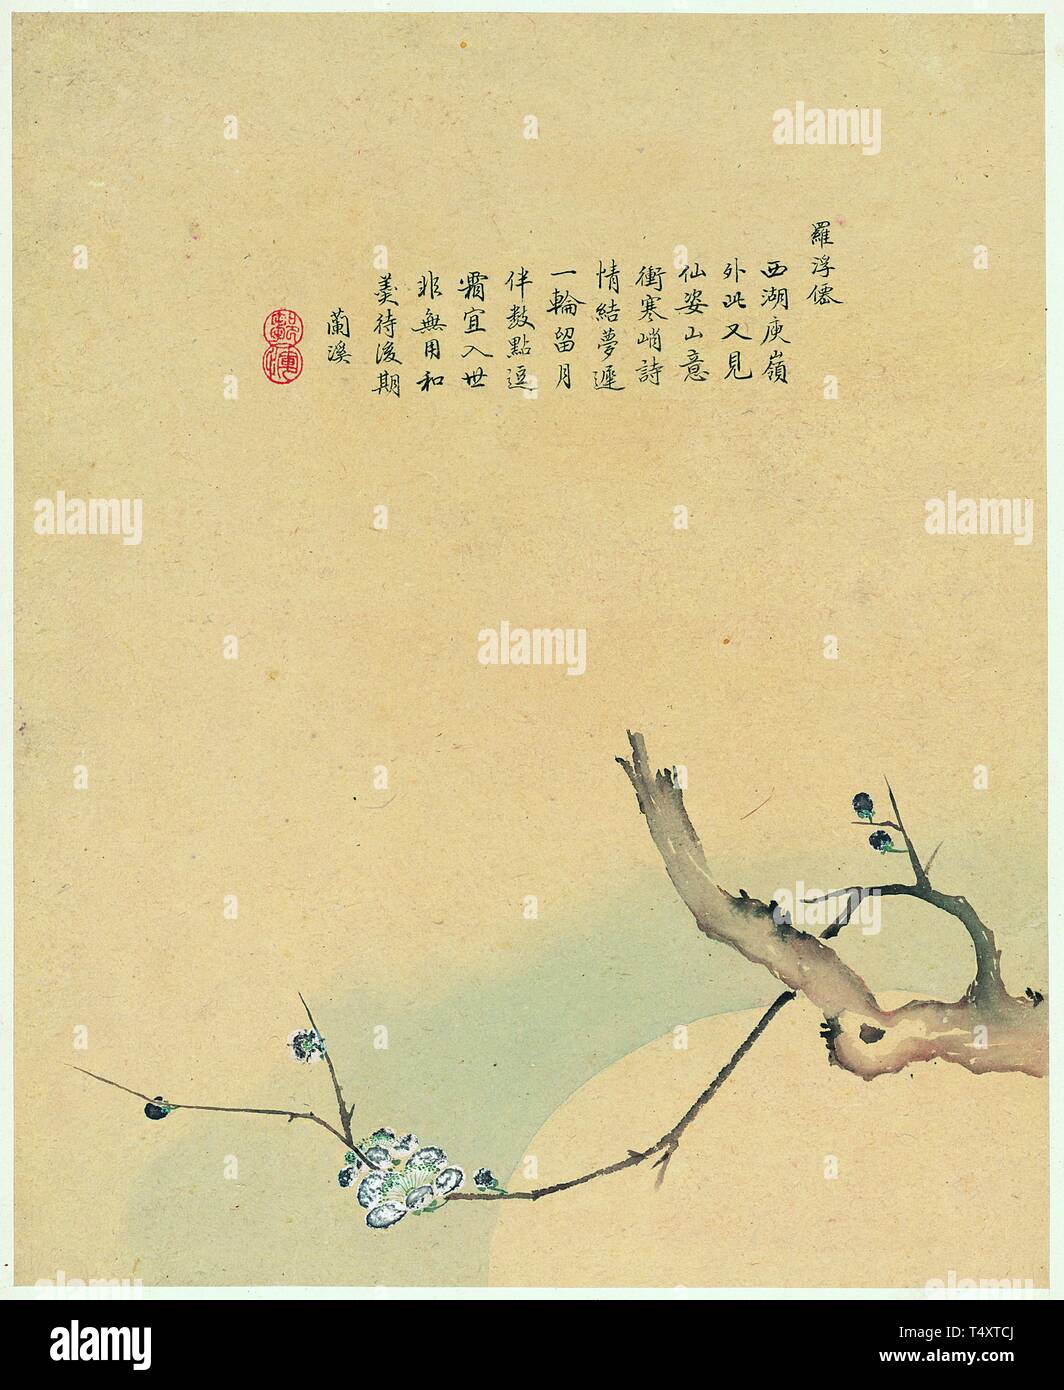 羅浮僊
西湖庾嶺
外此又見
仙姿山意
衝寒峭詩
情結夢遲
一輪留月
伴数點逗
霜宜入世
非無用和
羹待後期
蘭溪
alamy
alamy
alamy
alamy
alamy
alamy
alamy
a
alamy
Image ID: T4XTCJ
www.alamy.com